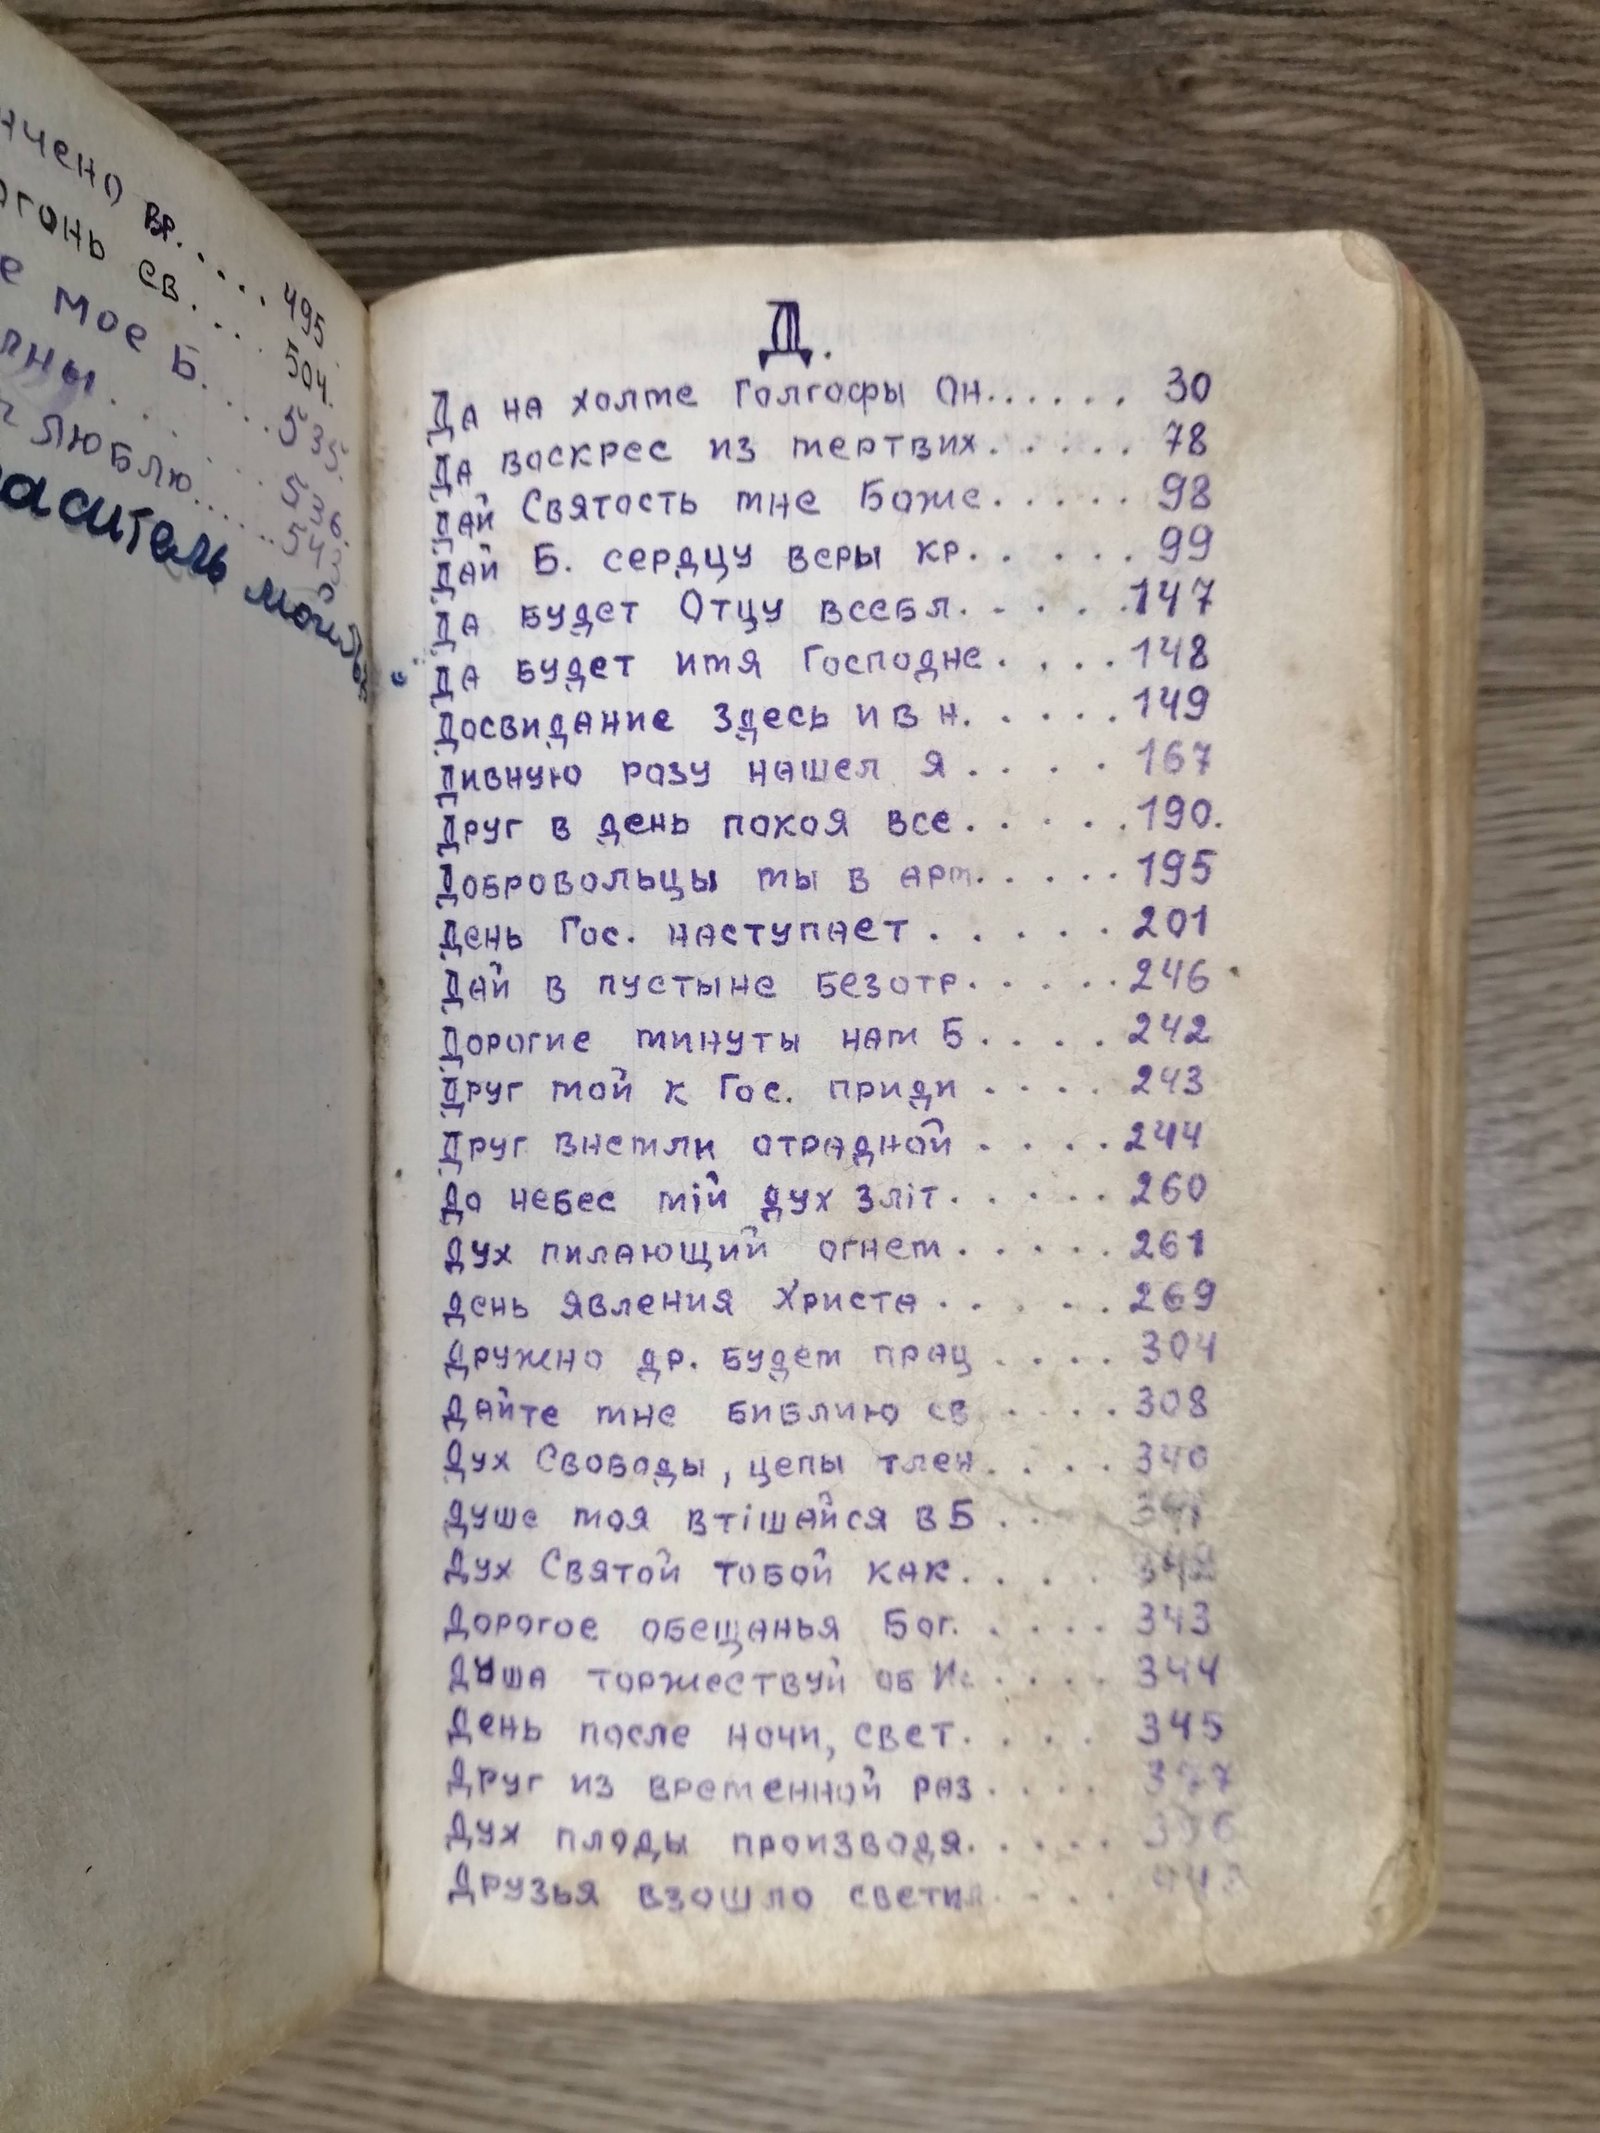 вр. . . . . 495
огонь св. . . . . 504.
е мое Б. . . . 535.
. . . . 536.
люблю . . . . . 543
мой
Д.
Да на холме Голгофы Он. . . . . . 30
Да воскрес из мертвих . . . . . 78
Дай Святость мне Боже . . . . . 98
Дай Б. сердцу веры кр. . . . . . 99
Да будет Отцу всебл. . . . . . 147
Да будет имя Господне . . . . 148
Досвидание здесь и в н. . . . . . 149
Дивную розу нашел я . . . . 167
Друг в день покоя все . . . . . 190.
Добровольцы мы в арм. . . . . . 195
День Гос. наступает . . . . . 201
Дай в пустыне безотр. . . . . . 246
Дорогие минуты нам Б . . . . 242
Друг мой к Гос. приди . . . . 243
Друг внемли отрадной . . . . 244
До небес мій дух зліт . . . . . 260
Дух пилающий огнем . . . . . 261
День явления Христа . . . . . 269
Дружно др. будем прац . . . . 304
Дайте мне библию св . . . . 308
Дух Свободы, цепы тлен . . . . 340
Душе моя втішайся в Б . . .
Дух Святой тобой как . . . .
Дорогое обещанья Бог. . . . . 343
Душа торжествуй об Ис . . . . 344
День после ночи, свет. . . . . 345
Друг из временной раз . . . .
Дух плоды производя . . . . .
Друзья взошло светил . . . .